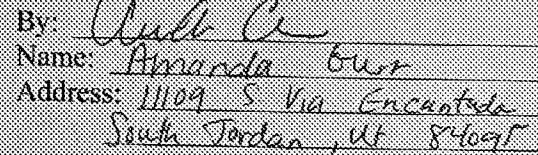 By:
Name: Amanda Gurr
Address: 11109 S Via Encantada
South Jordan, Ut 84095